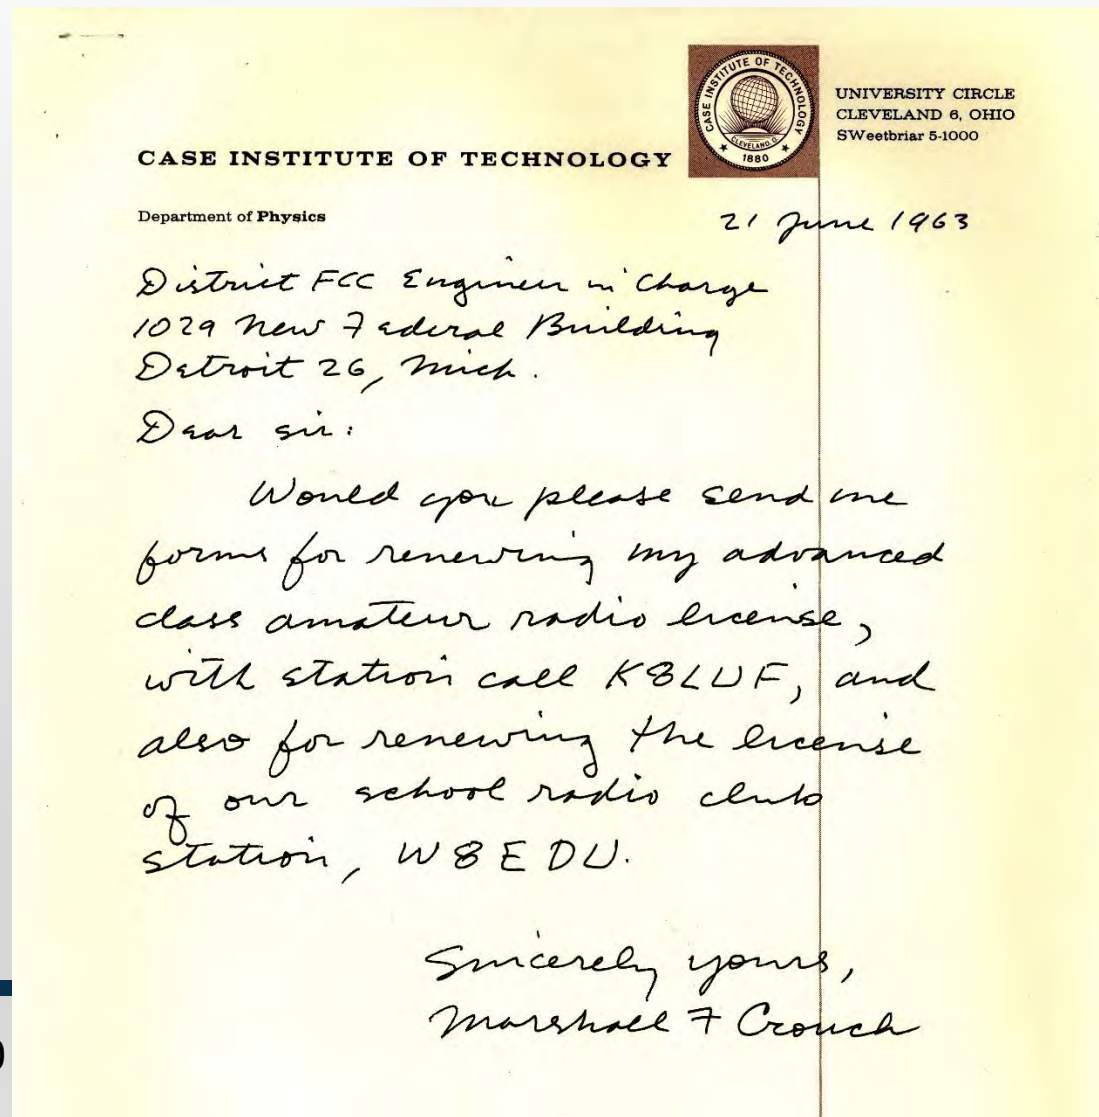 CASE INSTITUTE OF TECHNOLOGY
CASE INSTITUTE OF TECHNOLOGY
CLEVELAND, O.
1880
UNIVERSITY CIRCLE
CLEVELAND 6, OHIO
SWeetbriar 5-1000
Department of Physics
21 June 1963
District FCC Engineer in Charge
1029 New Federal Building
Detroit 26, Mich.
Dear sir:
Would you please send me
forms for renewing my advanced
class amateur radio license,
with station call K8LUF, and
also for renewing the license
of our school radio club
station, W8EDU.
Sincerely yours,
Marshall F Crouch